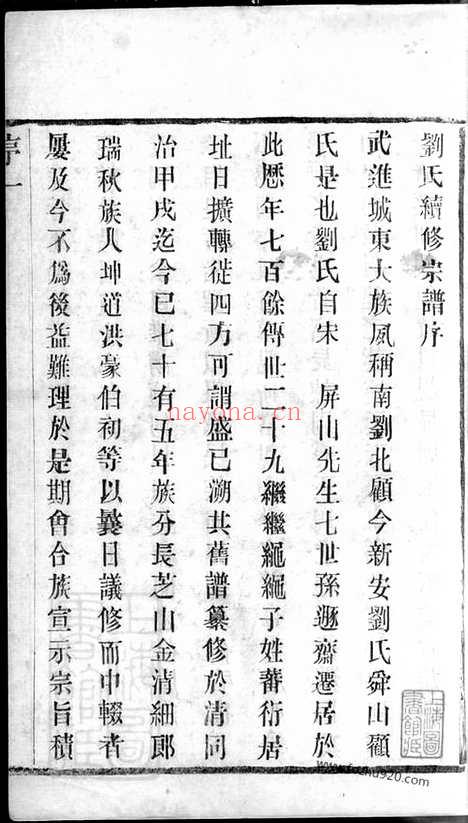 劉氏續修宗譜序
武進城東大族夙稱南劉北顧今新安劉氏舜山顧
氏是也劉氏自宋　屏山先生七世孫遯齋遷居於
此歷年七百餘傳世二十九繼繼繩繩子姓蕃衍居
址日擴轉徙四方可謂盛已溯其舊譜纂修於清同
治甲戌迄今已七十有五年族分長芝山金清細郎
瑞秋族人坤道洪豪伯初等以曩日議修而中輟者
屢及今不爲後益難理於是期會合族宣示宗旨積
序一
上海圖書館藏
hayona.cn
www.fozhu920.com